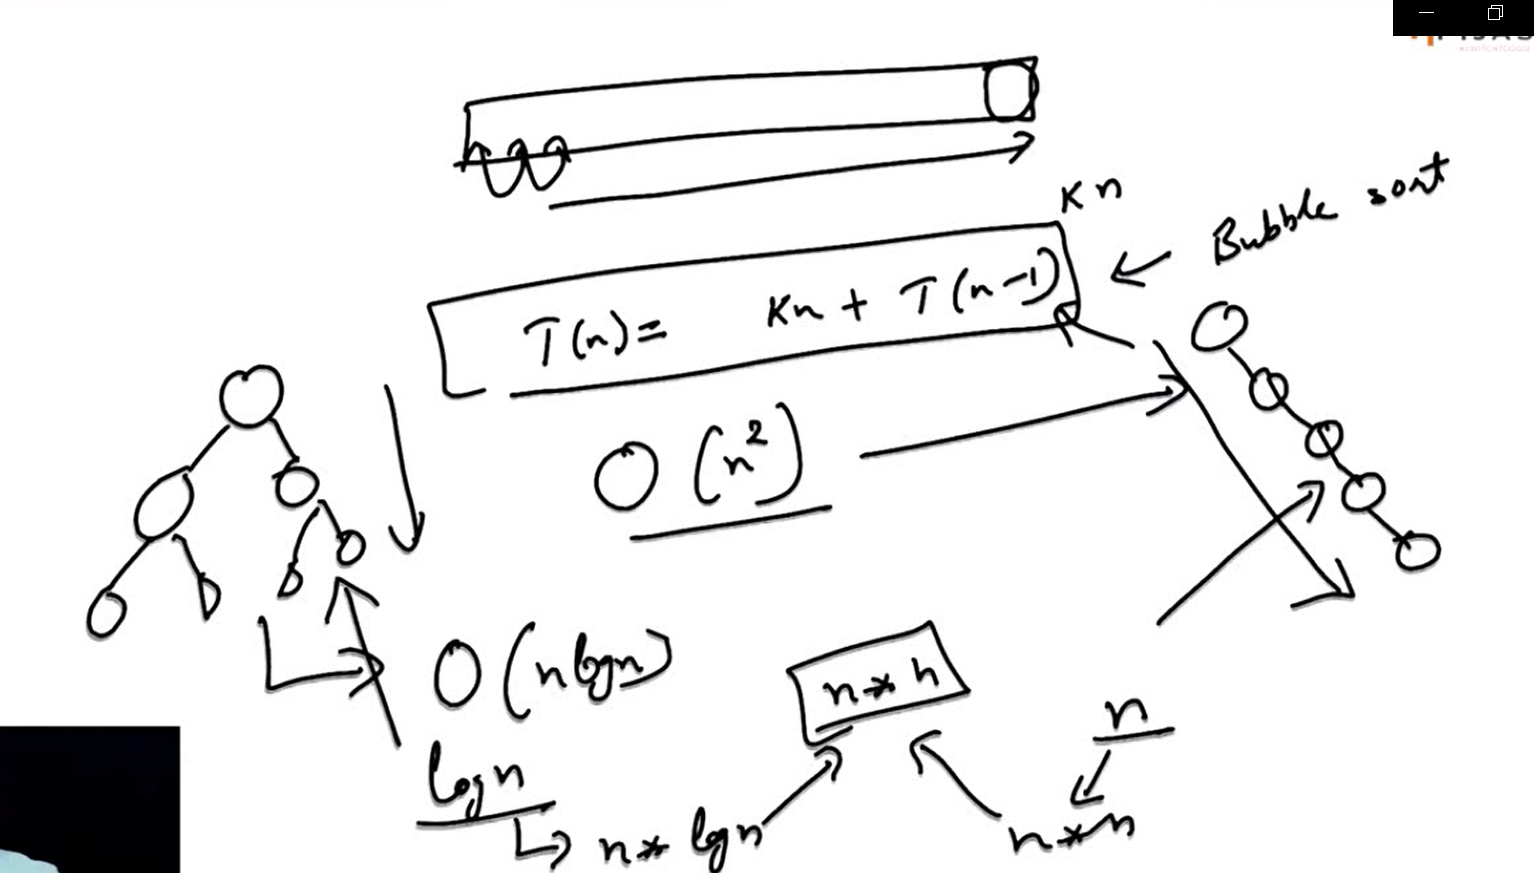 Kn
Bubble sort
T(n)= Kn + T(n-1)
O(n²)
O(nlogn)
n * h
n
logn
n * logn
n * n